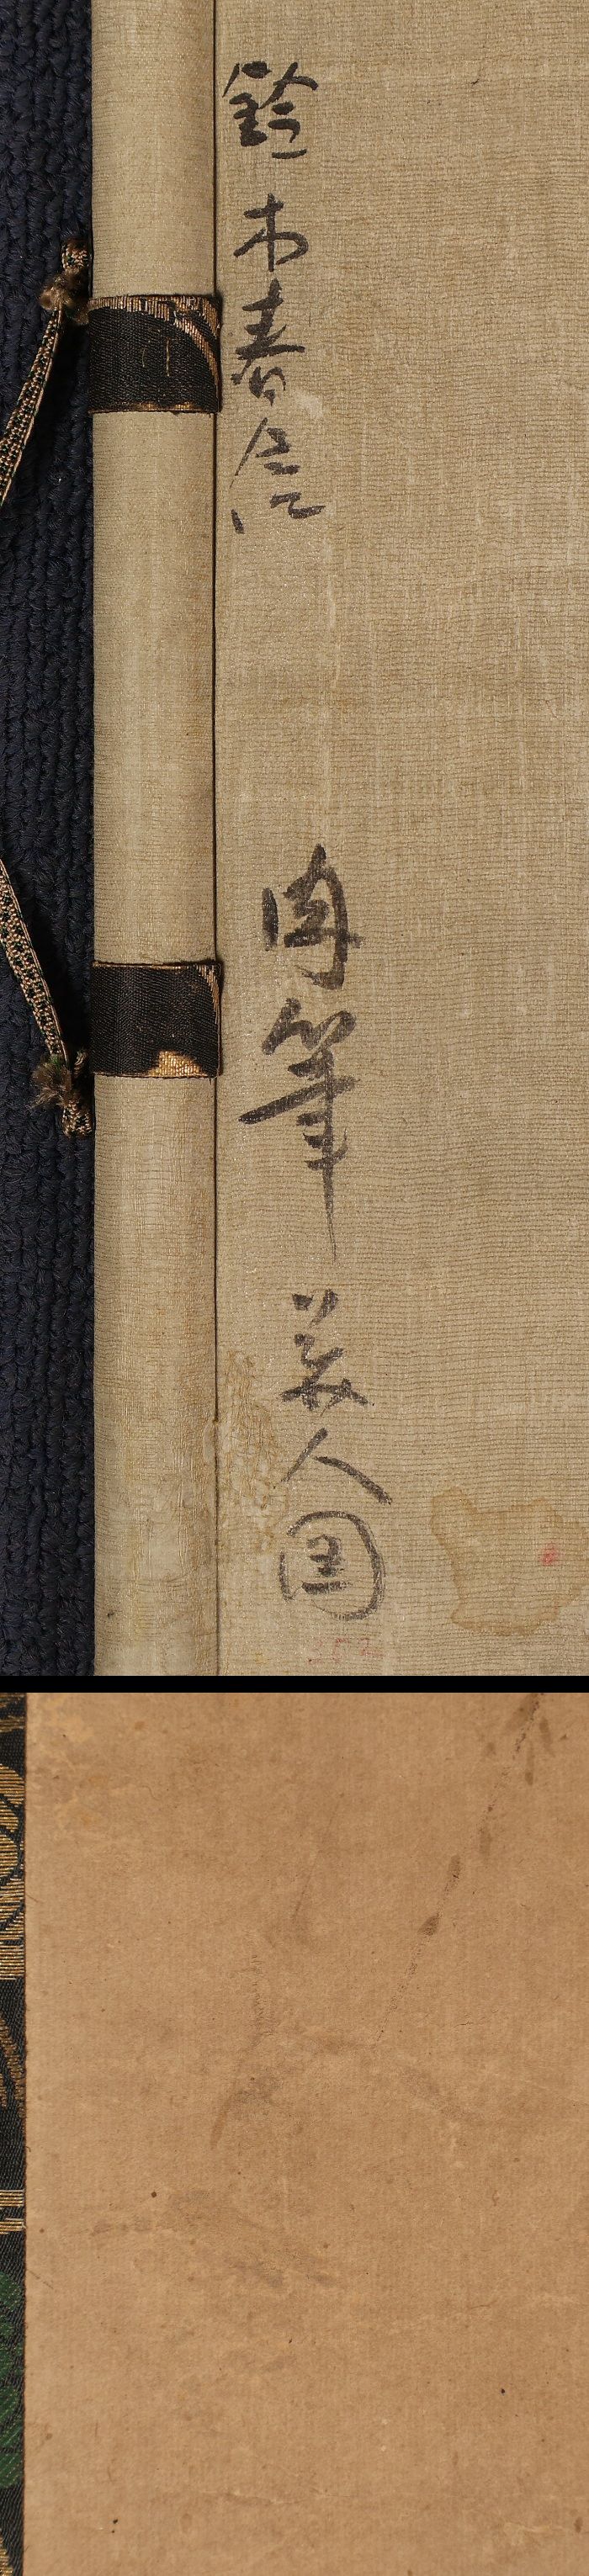 鈴木春信
肉筆美人図